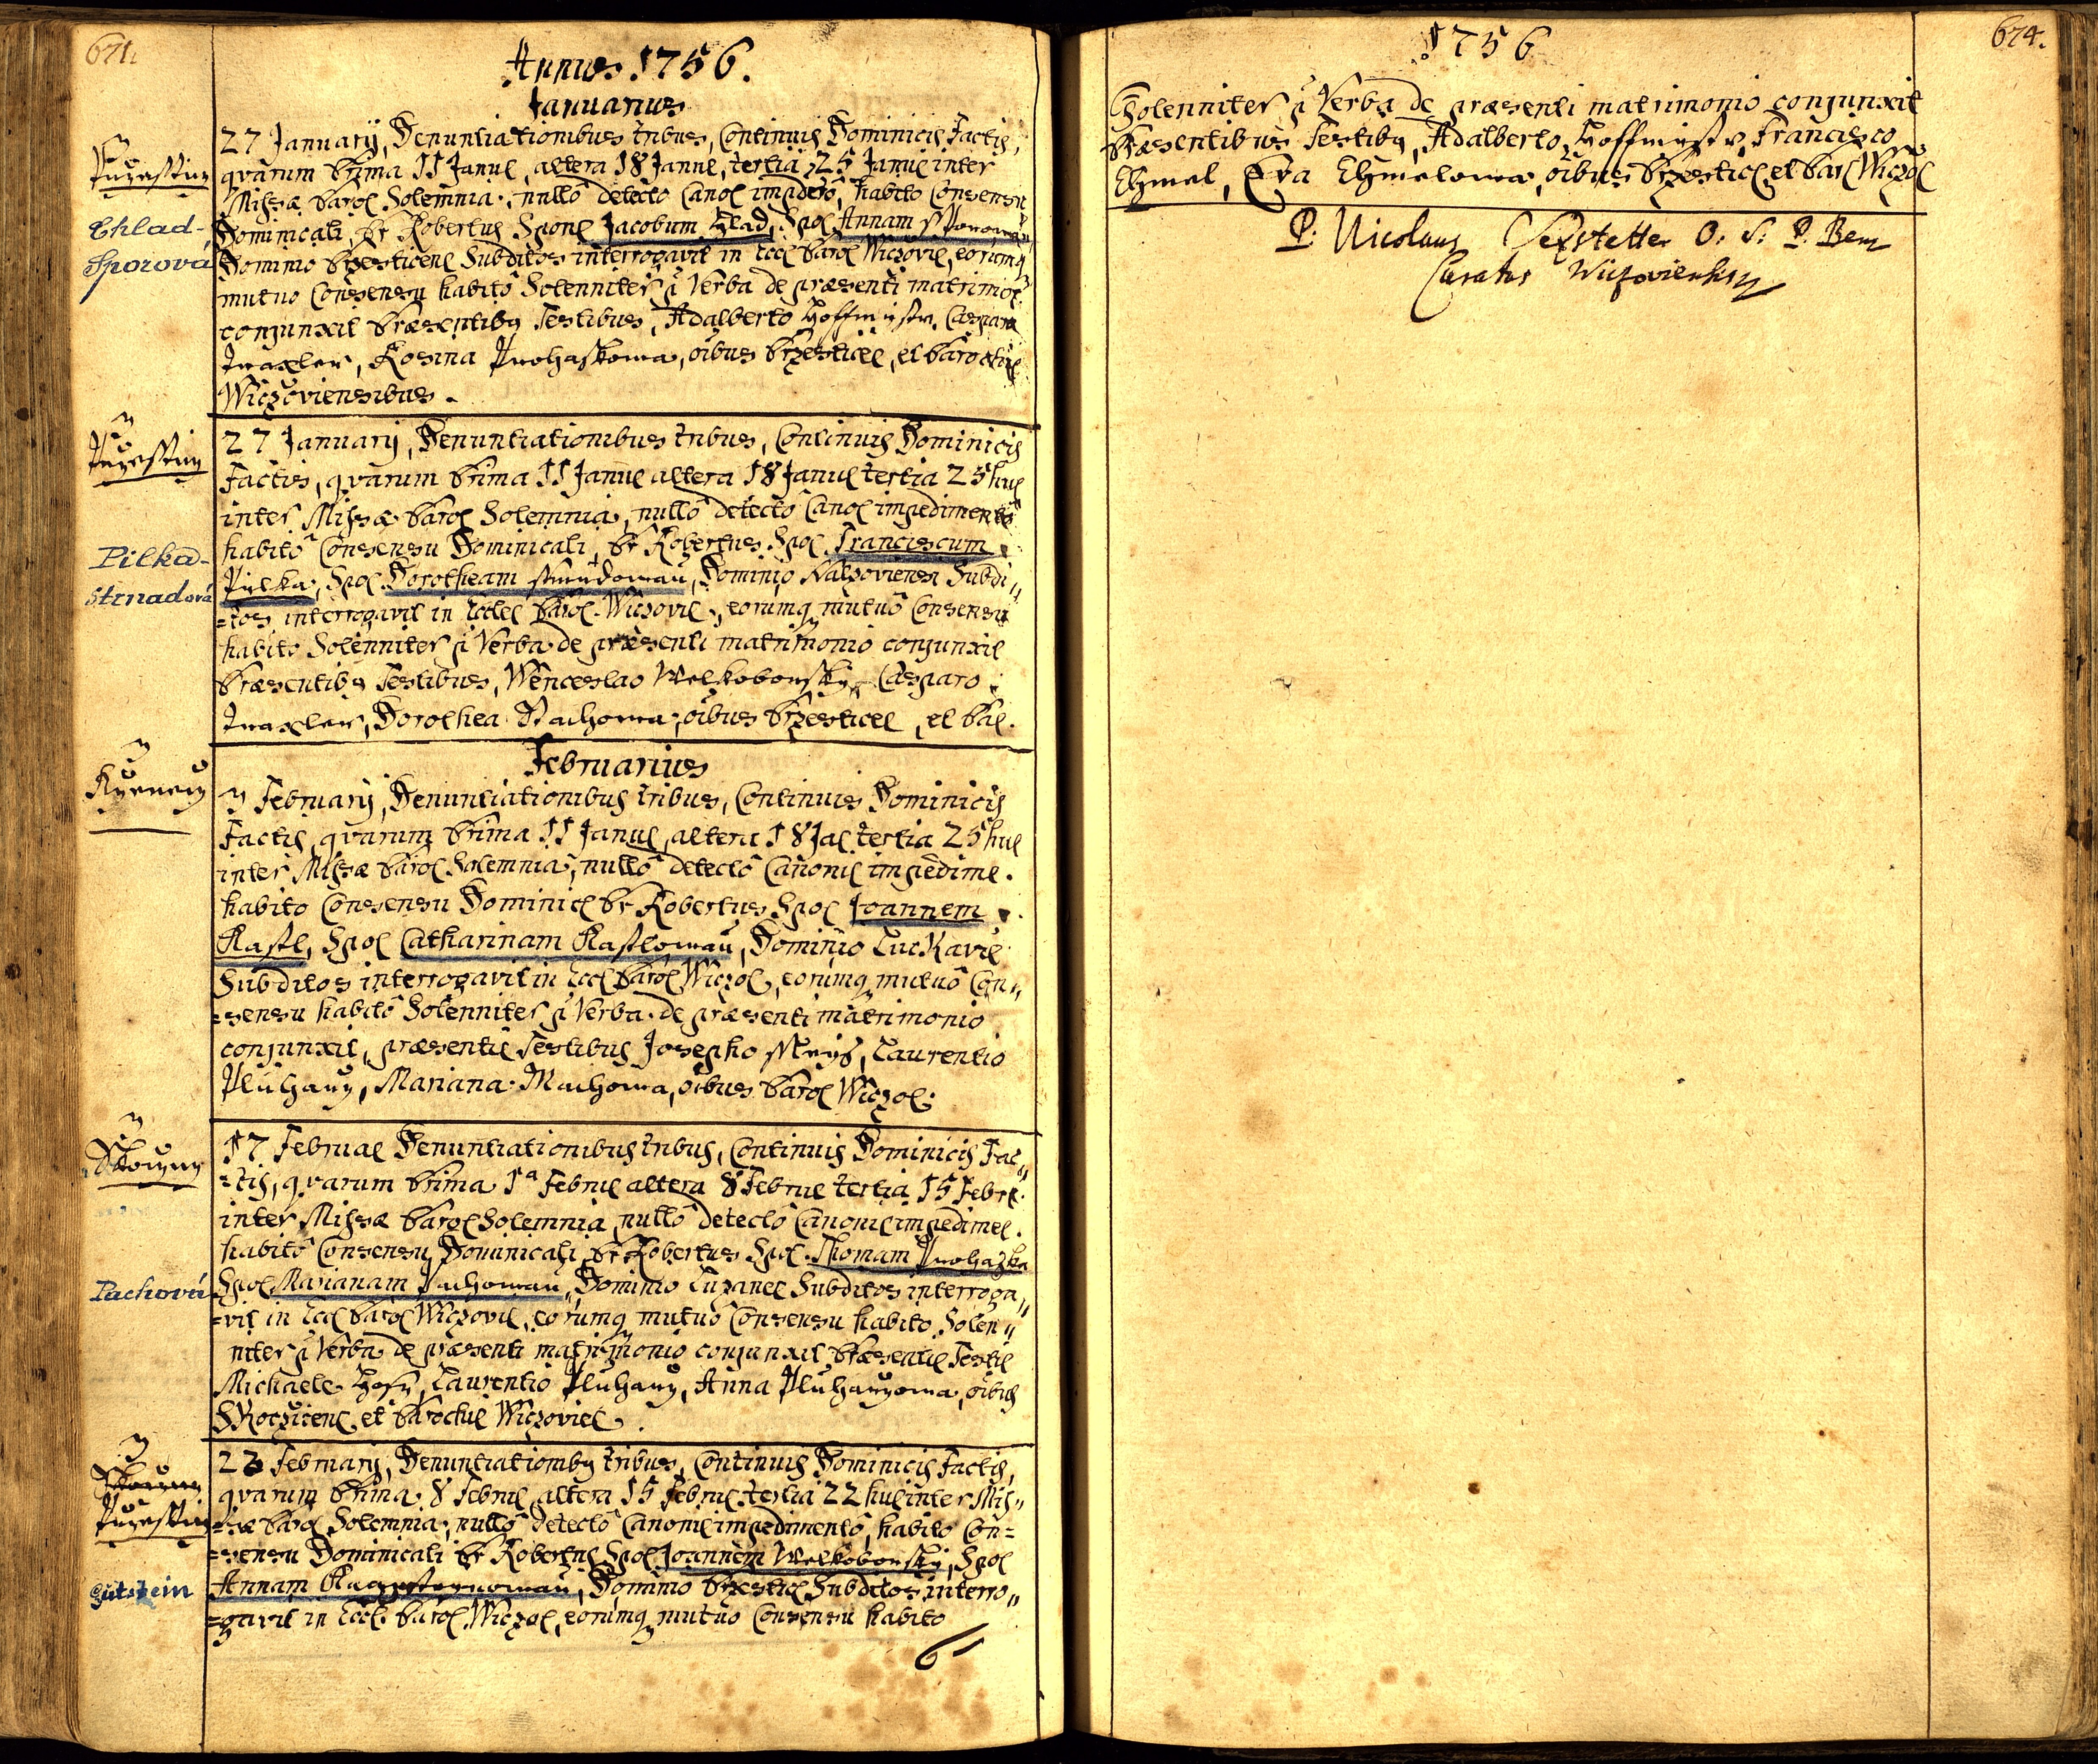 671.
Annus 1756.
Januarius
Przesstin
Chlad-
Sporová
27 Januarij, Denuntiationibus tribus, Continuis Dominicis Factis,
qvarum Prima 11 Janu altera 18 Janu, tertia 25 Janu inter
Missæ Paroc Solemnia, nullô detectô Canoc impedto, habito Consensu
Dominicali, Pr Robertus Spons Jacobum Hlad, Spoc Annam
Dominio Przesticens Subditos interrogavit in Eccl Paroc Wiczovie, eorumq
mutuo Consensu habitô Solenniter p Verba de præsenti matrimoc
conjunxit Præsentibq Testibus, Adalberto Hoffmystr, Casparo
Traxler, Rosina Prohaskowa, oibus Przestice, et Paroch
Wiczoviensibus.
Przesstin
Pilka-
Strnadová
27 Januarij, Denuntiationibus tribus, Continuis Dominicis
Factis, qvarum Prima 11 Janu altera 18 Janu tertia 25 hu
inter Missæ Paroc Solemnia, nullô detectô Canoc impedimentô
habitô Consensu Dominicali, Pr Robertus Spoc Franciscum
Pilka, Spoc Dorotheam Strnadowau, Dominio Nalzoviensi Subdi„
=tos interrogavit in Eccle Paroc Wiczovie, eorumq mutuô Consensu
habito Solenniter p Verba de præsenti matrimonio conjunxit
Præsentibq Testibus, Wenceslao Welkoborsky, Casparo
Traxler, Dorothea Stachowa, oibus Przestice, et Pa.
Februarius
3 Februarij, Denuntiationibus tribus, Continuis Dominicis
Factis, qvarum Prima 11 Janu, altera 18 Ja tertia 25 hu
inter Missæ Paroc Solemnia, nullô detectô Canonic impedime.
habito Consensu Dominic Pr Robertus Spoc Joannem
Rastl, Spoc Catharinam Rastlowau, Dominio Lukavic
Subditos interrogavit in Eccl Paroc Wiczoc, eorumq mutuô Con„
=sensu habitô Solenniter p Verba de præsenti matrimonio
conjunxit, præsentib Testibus Josepho, Laurentio
Pluhaug, Mariana Machowa, oibus Paroc Wiczoc.
Pachová
17 Februae Denuntiationibus tribus, Continuis Dominicis Fac„
=tis, qvarum Prima 1a Febru altera 8 Febru tertia 15 Febr.
inter Missæ Paroc Solemnia, nullô detectô Canonic impedime.
habitô Consensu Dominicali, Pr Robertus Spoc Thomam Prohazka
Spoc Marianam Pachowau, Dominio Luzanec Subditos interroga„
=vit in Eccl Paroc Wiczovie, eorumq mutuô Consensu habito Solen„
niter p Verba de præsenti matrimonio conjunxit Præsentib Testib
Michaele, Laurentio Pluhaug, Anna Pluhaugowa, oibus
Skoczicens et Parochi Wiczovie.
Przesstin
Gutstein
23 Februarij, Denuntiationibq tribus, Continuis Dominicis Factis,
qvarum Prima 8 Febru altera 15 Febru tertia 22 hu inter Mis„
=sæ Paroc Solemnia, nullô detectô Canonic impedimentô, habito Con=
=sensu Dominicali Pr Robertus Spoc Joannem Welkoborsky, Spoc
Annam, Dominio Przestic Subditos interro„
=gavit in Eccl. Paroc Wiczoc, eorumq mutuo Consensu habito
1756
674.
Solenniter p Verba de præsenti matrimonio conjunxit
Præsentibus Testibq, Adalberto Hoffmystr, Francisco
Chmel, Eva Chmelowa, oibus Przestic et Par Wiczoc
P. Nicolaus Sexstetter O. S. P. Ben
Curatus Wiczoviensis